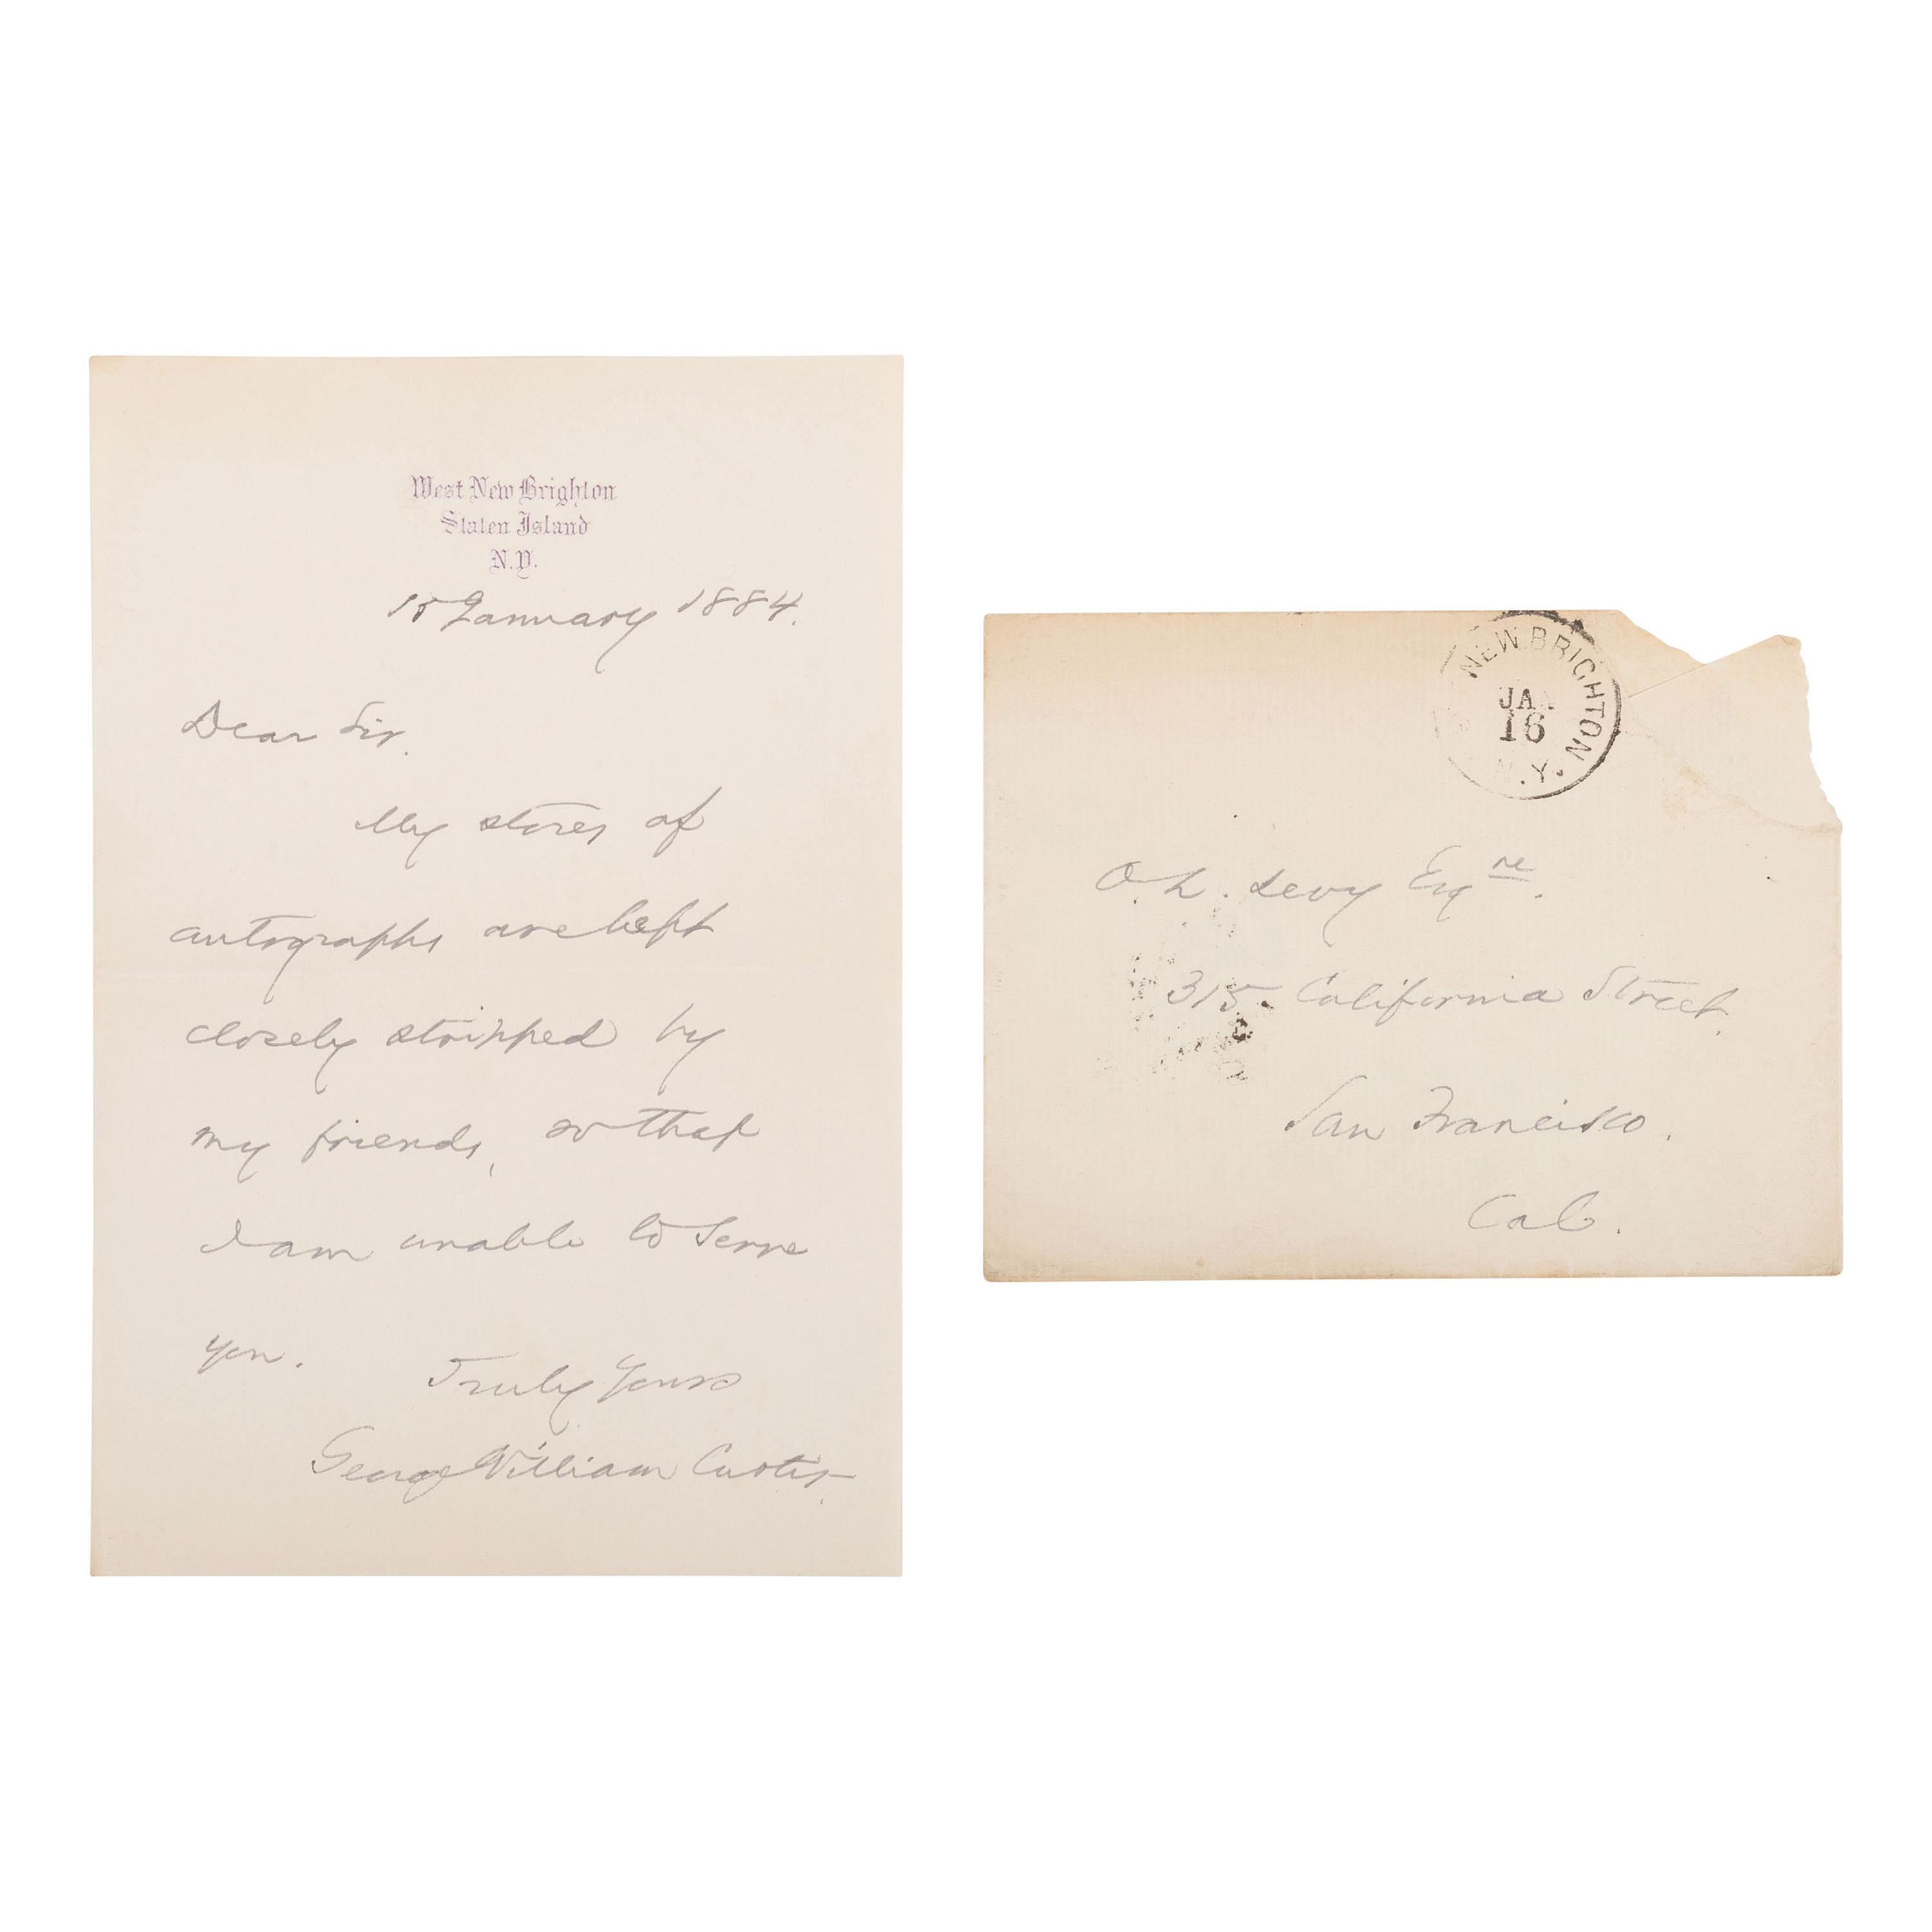 West New Brighton
Staten Island
N.Y.
15 January 1884.
Dear Sir.
My stores of
autographs are kept
closely stripped by
my friends, so that
I am unable to serve
you.
Truly Yours
George William Curtis.
NEW BRIGHTON
JA
16
N.Y.
O. L. Levy Esqre.
315 California Street.
San Francisco.
Cal.